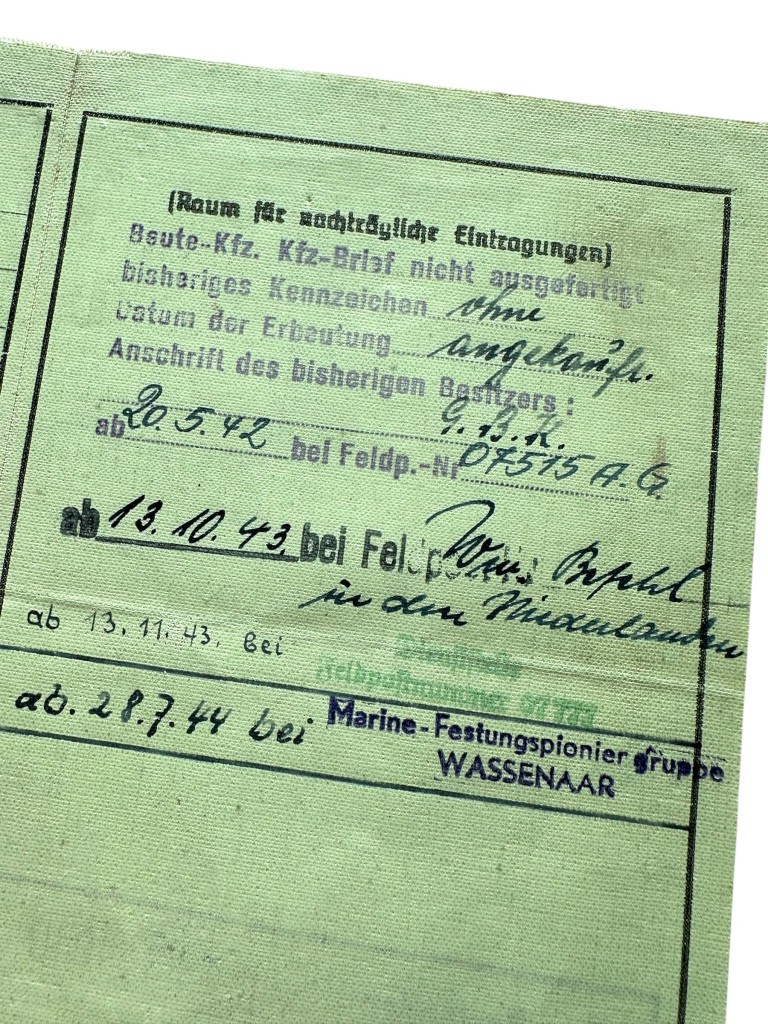 (Raum für nachträgliche Eintragungen)
Beute-Kfz. Kfz-Brief nicht ausgefertigt
bisheriges Kennzeichen ohne
Datum der Erbeutung angekauft.
Anschrift des bisherigen Besitzers:
G.B.K.
ab 20.5.42 bei Feldp.-Nr 07515 A.G.
ab 13.10.43. bei
in den Niederlanden
ab 13.11.43. bei
Feldpostnummer
ab. 28.7.44 bei Marine-Festungspioniergruppe
WASSENAAR